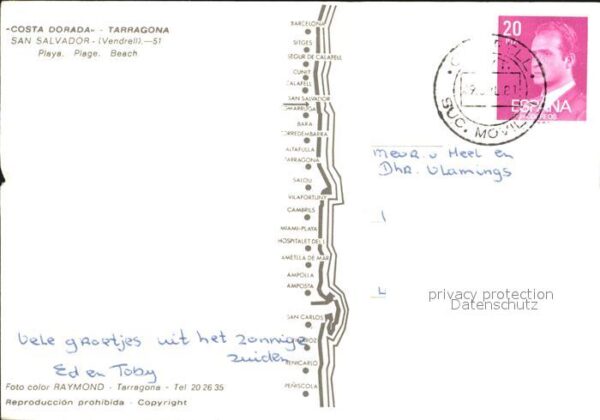 «COSTA DORADA» - TARRAGONA
SAN SALVADOR - (Vendrell).—51
Playa. Plage. Beach.
BARCELONA
SITGES
SEGUR DE CALAFELL
CUNIT
CALAFELL
SAN SALVADOR
COMARRUGA
BARA
TORREDEMBARRA
ALTAFULLA
TARRAGONA
SALOU
VILAFORTUNY
CAMBRILS
MIAMI-PLAYA
HOSPITALET DEL I.
AMETLLA DE MAR
AMPOLLA
AMPOSTA
SAN CARLOS
ROZ
BENICARLO
PEÑISCOLA
20
ESPAÑA
CORREOS
SUC. MOVIL
Meur. v Heel en
Dhr. Vlamings
privacy protection
Datenschutz
Vele groetjes uit het zonnige
zuiden
Ed en Toby
Foto color RAYMOND - Tarragona - Tel 20 26 35
Reproducción prohibida - Copyright